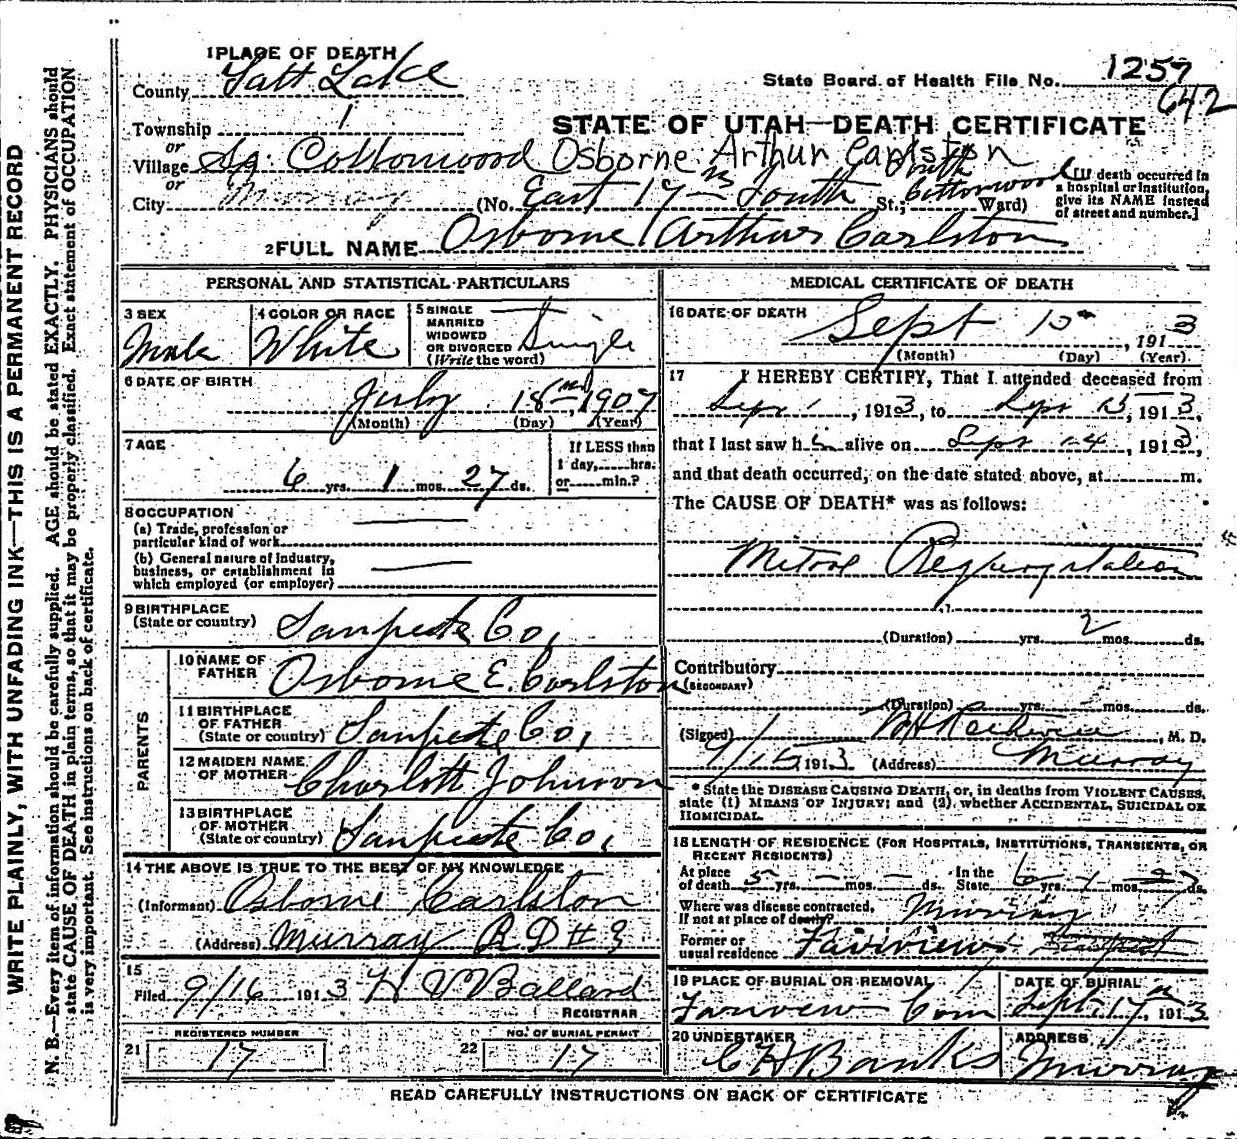 1 PLACE OF DEATH
County Salt Lake
State Board of Health File No. 1257
642
Township 1
STATE OF UTAH—DEATH CERTIFICATE
or
Village So. Cottonwood Osborne Arthur Carlston
or
City Murray (No. East 17th South St.; South Cottonwood Ward)
[If death occurred in
a hospital or institution,
give its NAME instead
of street and number.]
2 FULL NAME Osborne Arthur Carlston
PERSONAL AND STATISTICAL PARTICULARS
3 SEX
Male
4 COLOR OR RACE
White
5 SINGLE
MARRIED
WIDOWED
OR DIVORCED
(Write the word)
Single
6 DATE OF BIRTH
July 18th, 1907
(Month) (Day) (Year)
7 AGE
6 yrs. 1 mos. 27 ds.
If LESS than
1 day,......hrs.
or......min.?
8 OCCUPATION
(a) Trade, profession or
particular kind of work
(b) General nature of industry,
business, or establishment in
which employed (or employer)
9 BIRTHPLACE
(State or country) Sanpete Co,
PARENTS
10 NAME OF
FATHER Osborne E. Carlston
11 BIRTHPLACE
OF FATHER
(State or country) Sanpete Co,
12 MAIDEN NAME
OF MOTHER Charlott Johnson
13 BIRTHPLACE
OF MOTHER
(State or country) Sanpete Co,
14 THE ABOVE IS TRUE TO THE BEST OF MY KNOWLEDGE
(Informant) Osborne Carlston
(Address) Murray R D # 3
15
Filed 9/16 1913 H V Ballard
REGISTRAR
REGISTERED NUMBER
21 17
NO. OF BURIAL PERMIT
22 17
MEDICAL CERTIFICATE OF DEATH
16 DATE OF DEATH
Sept 15th, 1913
(Month) (Day) (Year)
17 I HEREBY CERTIFY, That I attended deceased from
Sept 1, 1913, to Sept 15, 1913,
that I last saw h alive on Sept 14, 1913,
and that death occurred, on the date stated above, at m.
The CAUSE OF DEATH* was as follows:
Mitral Regurgitation
(Duration) yrs. 2 mos. ds.
Contributory
(SECONDARY)
(Duration) yrs. mos. ds.
(Signed) M. D.
9/15 1913 (Address) Murray
* State the DISEASE CAUSING DEATH, or, in deaths from VIOLENT CAUSES,
state (1) MEANS OF INJURY; and (2) whether ACCIDENTAL, SUICIDAL OR
HOMICIDAL.
18 LENGTH OF RESIDENCE (FOR HOSPITALS, INSTITUTIONS, TRANSIENTS, OR
RECENT RESIDENTS)
At place
of death 5 yrs. — mos. — ds.
In the
State 6 yrs. 1 mos. 27 ds.
Where was disease contracted,
If not at place of death? Murray
Former or
usual residence Fairview
19 PLACE OF BURIAL OR REMOVAL
Fairview Cem
DATE OF BURIAL
Sept. 17th, 1913
20 UNDERTAKER
C H Banks
ADDRESS
Murray
READ CAREFULLY INSTRUCTIONS ON BACK OF CERTIFICATE
WRITE PLAINLY, WITH UNFADING INK—THIS IS A PERMANENT RECORD
N. B.—Every item of information should be carefully supplied. AGE should be stated EXACTLY. PHYSICIANS should
state CAUSE OF DEATH in plain terms, so that it may be properly classified. Exact statement of OCCUPATION
is very important. See instructions on back of certificate.